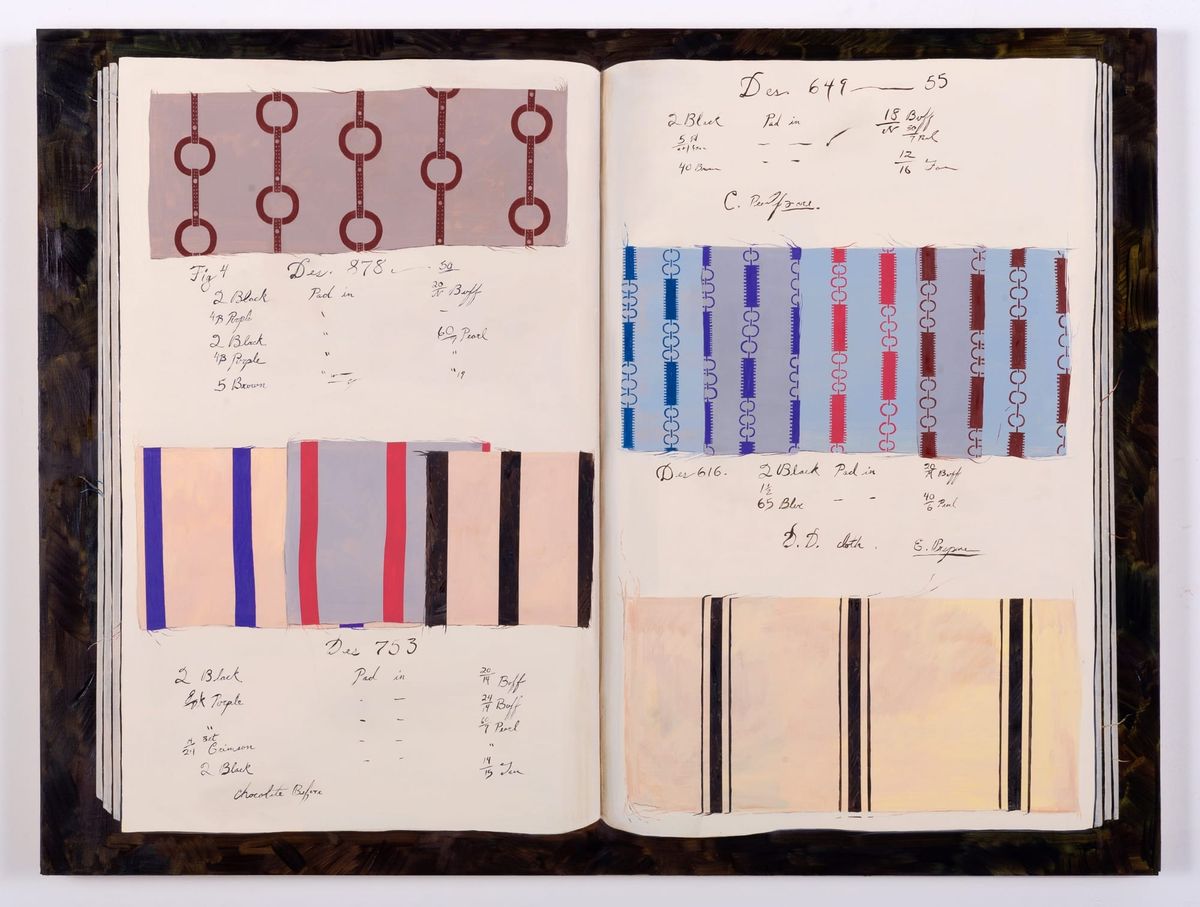 Fig 4 Des. 878. — 50
2 Black Pad in 20/N Buff
4B Purple " -
2 Black " 60/7 Pearl
4B Purple " "
5 Brown " "19
Des 753
2 Black Pad in 20/14 Buff
Purple - - 24/14 Buff
" - - 60/7 Pearl
Crimson - - "
2 Black - - 14/15
chocolate Buffore
Des. 649 — 55
2 Black Pad in 18/N Buff
5
40 Brown - - 12/16
C.
Des 616. 2 Black Pad in 20/N Buff
1½
65 Blue - - 40/6 Perl
D. D. cloth. E.